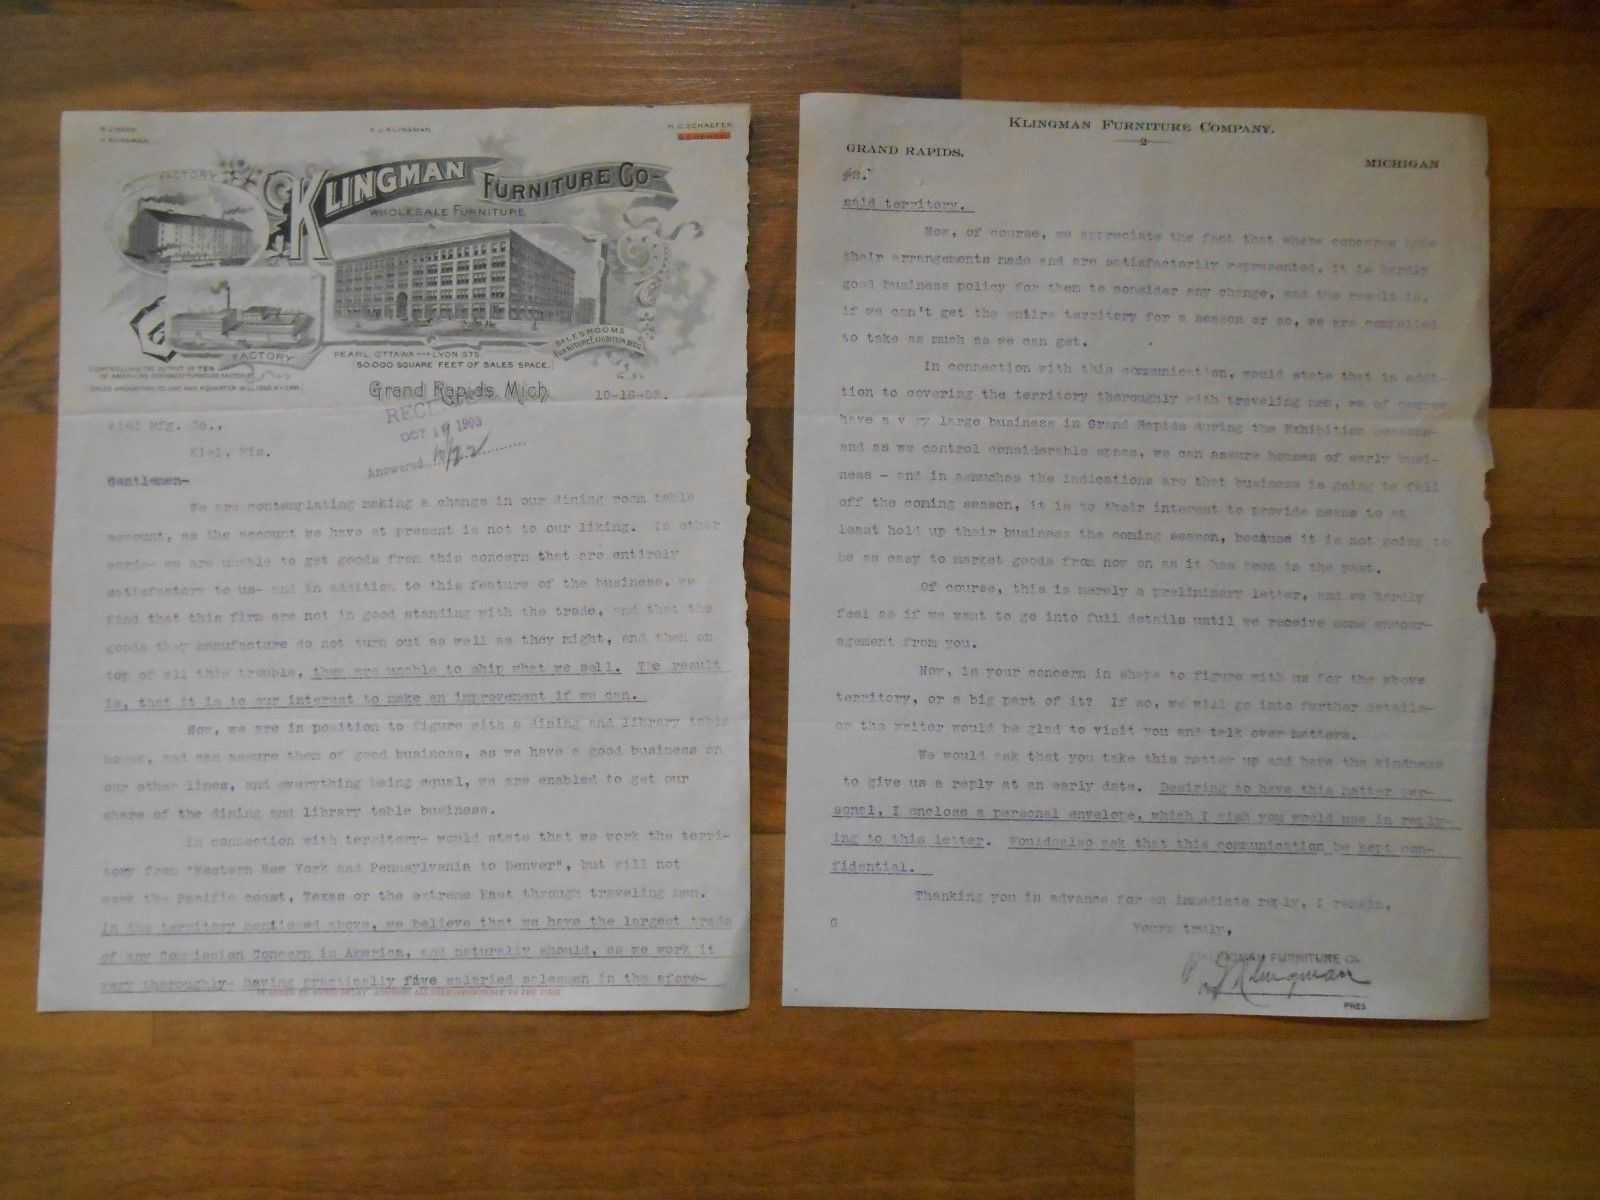 P. J. KLINGMAN.
H. C. SCHAEFER
FACTORY
KLINGMAN FURNITURE CO-
WHOLESALE FURNITURE
FACTORY
SALESROOMS
FURNITURE EXHIBITION BLDG.
PEARL OTTAWA AND LYON STS
50,000 SQUARE FEET OF SALES SPACE.
CONTROLLING THE OUTPUT OF TEN
OF AMERICA'S FOREMOST FURNITURE FACTORIES
SALES AMOUNTING TO ONE AND A QUARTER MILLIONS A YEAR.
Grand Rapids, Mich. 10-18-03.
OCT 19 1903
Answered 10/22
Kiel Mfg. Co.,
Kiel, Wis.
Gentlemen-
We are contemplating making a change in our dining room table
account, as the account we have at present is not to our liking. In other
words- we are unable to get goods from this concern that are entirely
satisfactory to us- and in addition to this feature of the business, we
find that this firm are not in good standing with the trade, and that the
goods they manufacture do not turn out as well as they might, and then on
top of all this trouble, they are unable to ship what we sell. The result
is, that it is to our interest to make an improvement if we can.
Now, we are in position to figure with a dining and library table
house, and can assure them of good business, as we have a good business on
our other lines, and everything being equal, we are enabled to get our
share of the dining and library table business.
In connection with territory- would state that we work the terri-
tory from "Western New York and Pennsylvania to Denver", but will not
work the Pacific coast, Texas or the extreme East through traveling men.
In the territory mentioned above, we believe that we have the largest trade
of any Commission Concern in America, and naturally should, as we work it
very thoroughly- having practically five salaried salesmen in the afore-
IN ORDER TO AVOID DELAY ADDRESS ALL CORRESPONDENCE TO THE FIRM
KLINGMAN FURNITURE COMPANY.
2
GRAND RAPIDS, MICHIGAN
#2.
said territory.
Now, of course, we appreciate the fact that where concerns have
their arrangements made and are satisfactorily represented, it is hardly
good business policy for them to consider any change, and the result is,
if we can't get the entire territory for a season or so, we are compelled
to take as much as we can get.
In connection with this communication, would state that in addi-
tion to covering the territory thoroughly with traveling men, we of course
have a v ry large business in Grand Rapids during the Exhibition seasons-
and as we control considerable space, we can assure houses of early busi-
ness - and in asmuchas the indications are that business is going to fall
off the coming season, it is to their interest to provide means to at
least hold up their business the coming season, because it is not going to
be as easy to market goods from now on as it has been in the past.
Of course, this is merely a preliminary letter, and we hardly
feel as if we want to go into full details until we receive some encour-
agement from you.
Now, is your concern in shape to figure with us for the above
territory, or a big part of it? If so, we will go into further details-
or the writer would be glad to visit you and talk over matters.
We would ask that you take this matter up and have the kindness
to give us a reply at an early date. Desiring to have this matter per-
sonal, I enclose a personal envelope, which I wish you would use in reply-
ing to this letter. Wouldaslso ask that this communication be kept con-
fidential.
Thanking you in advance for an immediate reply, I remain,
G
Yours truly,
KLINGMAN FURNITURE CO.
P J Klingman
PRES.